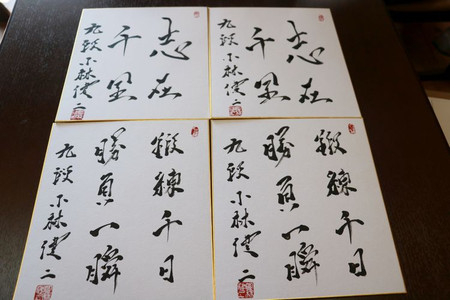 志在
千里
九段 小林健二
志在
千里
九段 小林健二
鍛錬千日
勝負一瞬
九段 小林健二
鍛錬千日
勝負一瞬
九段 小林健二